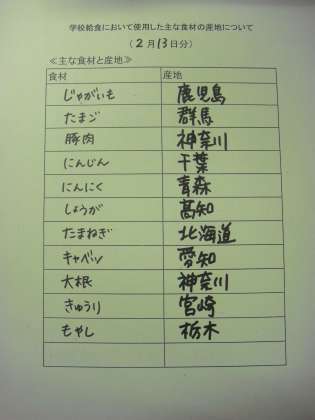 学校給食において使用した主な食材の産地について
(2月13日分)
≪主な食材と産地≫
食材 産地
じゃがいも 鹿児島
たまご 群馬
豚肉 神奈川
にんじん 千葉
にんにく 青森
しょうが 高知
たまねぎ 北海道
キャベツ 愛知
大根 神奈川
きゅうり 宮崎
もやし 栃木